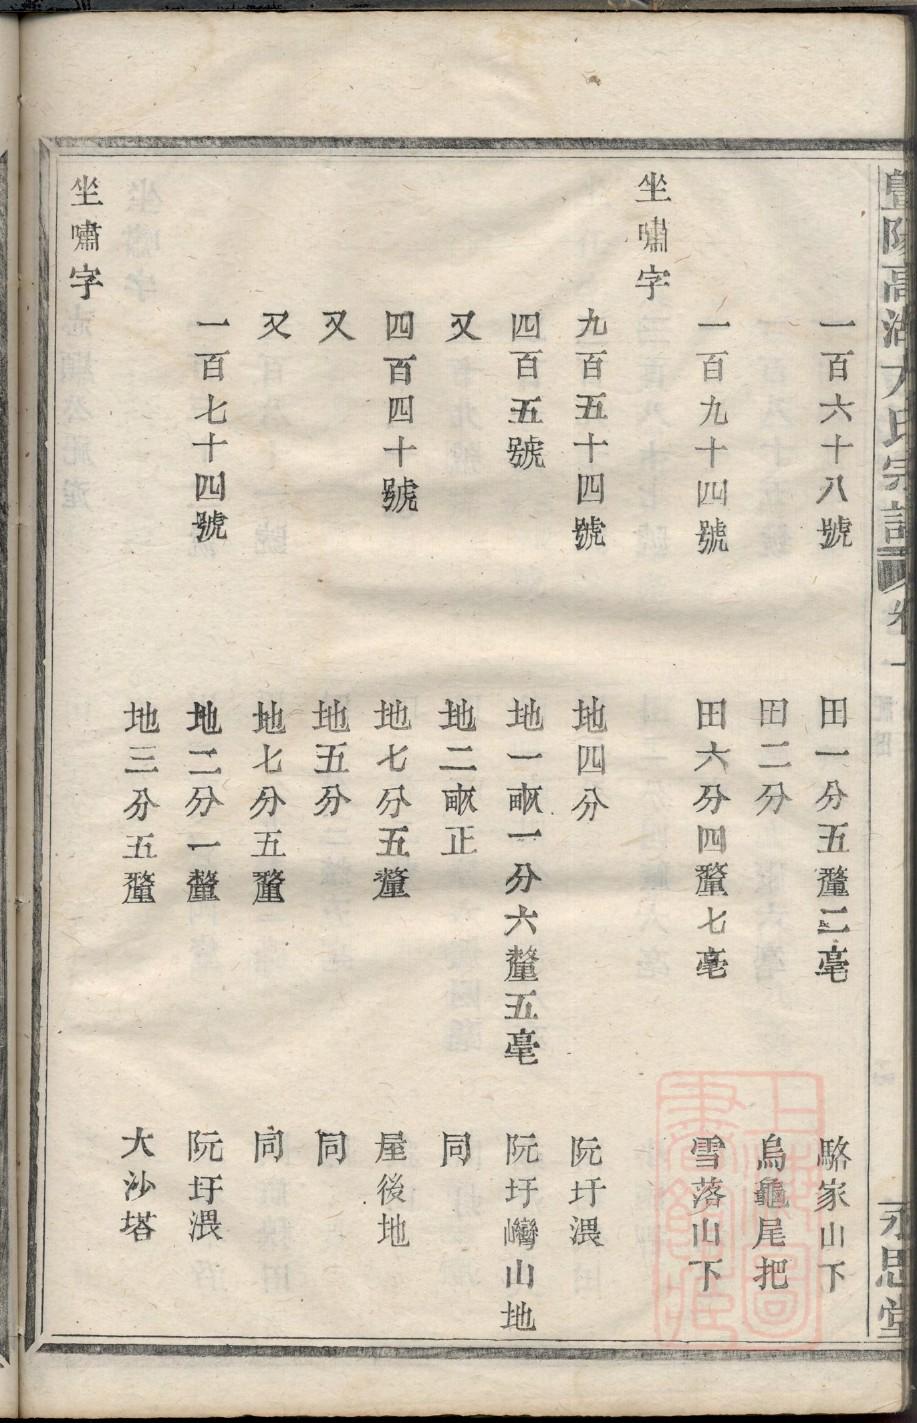 暨陽高湖方氏宗譜 卷一 永思堂
一百六十八號 田一分五釐二毫 駱家山下
田二分 烏龜尾把
一百九十四號 田六分四釐七毫 雪落山下
坐嘯字
九百五十四號 地四分 阮圩渨
四百五號 地一畝一分六釐五毫 阮圩巒山地
又 地二畝正 同
四百四十號 地七分五釐 屋後地
又 地五分 同
又 地七分五釐 同
一百七十四號 地二分一釐 阮圩渨
地三分五釐 大沙塔
坐嘯字
上海圖書館藏